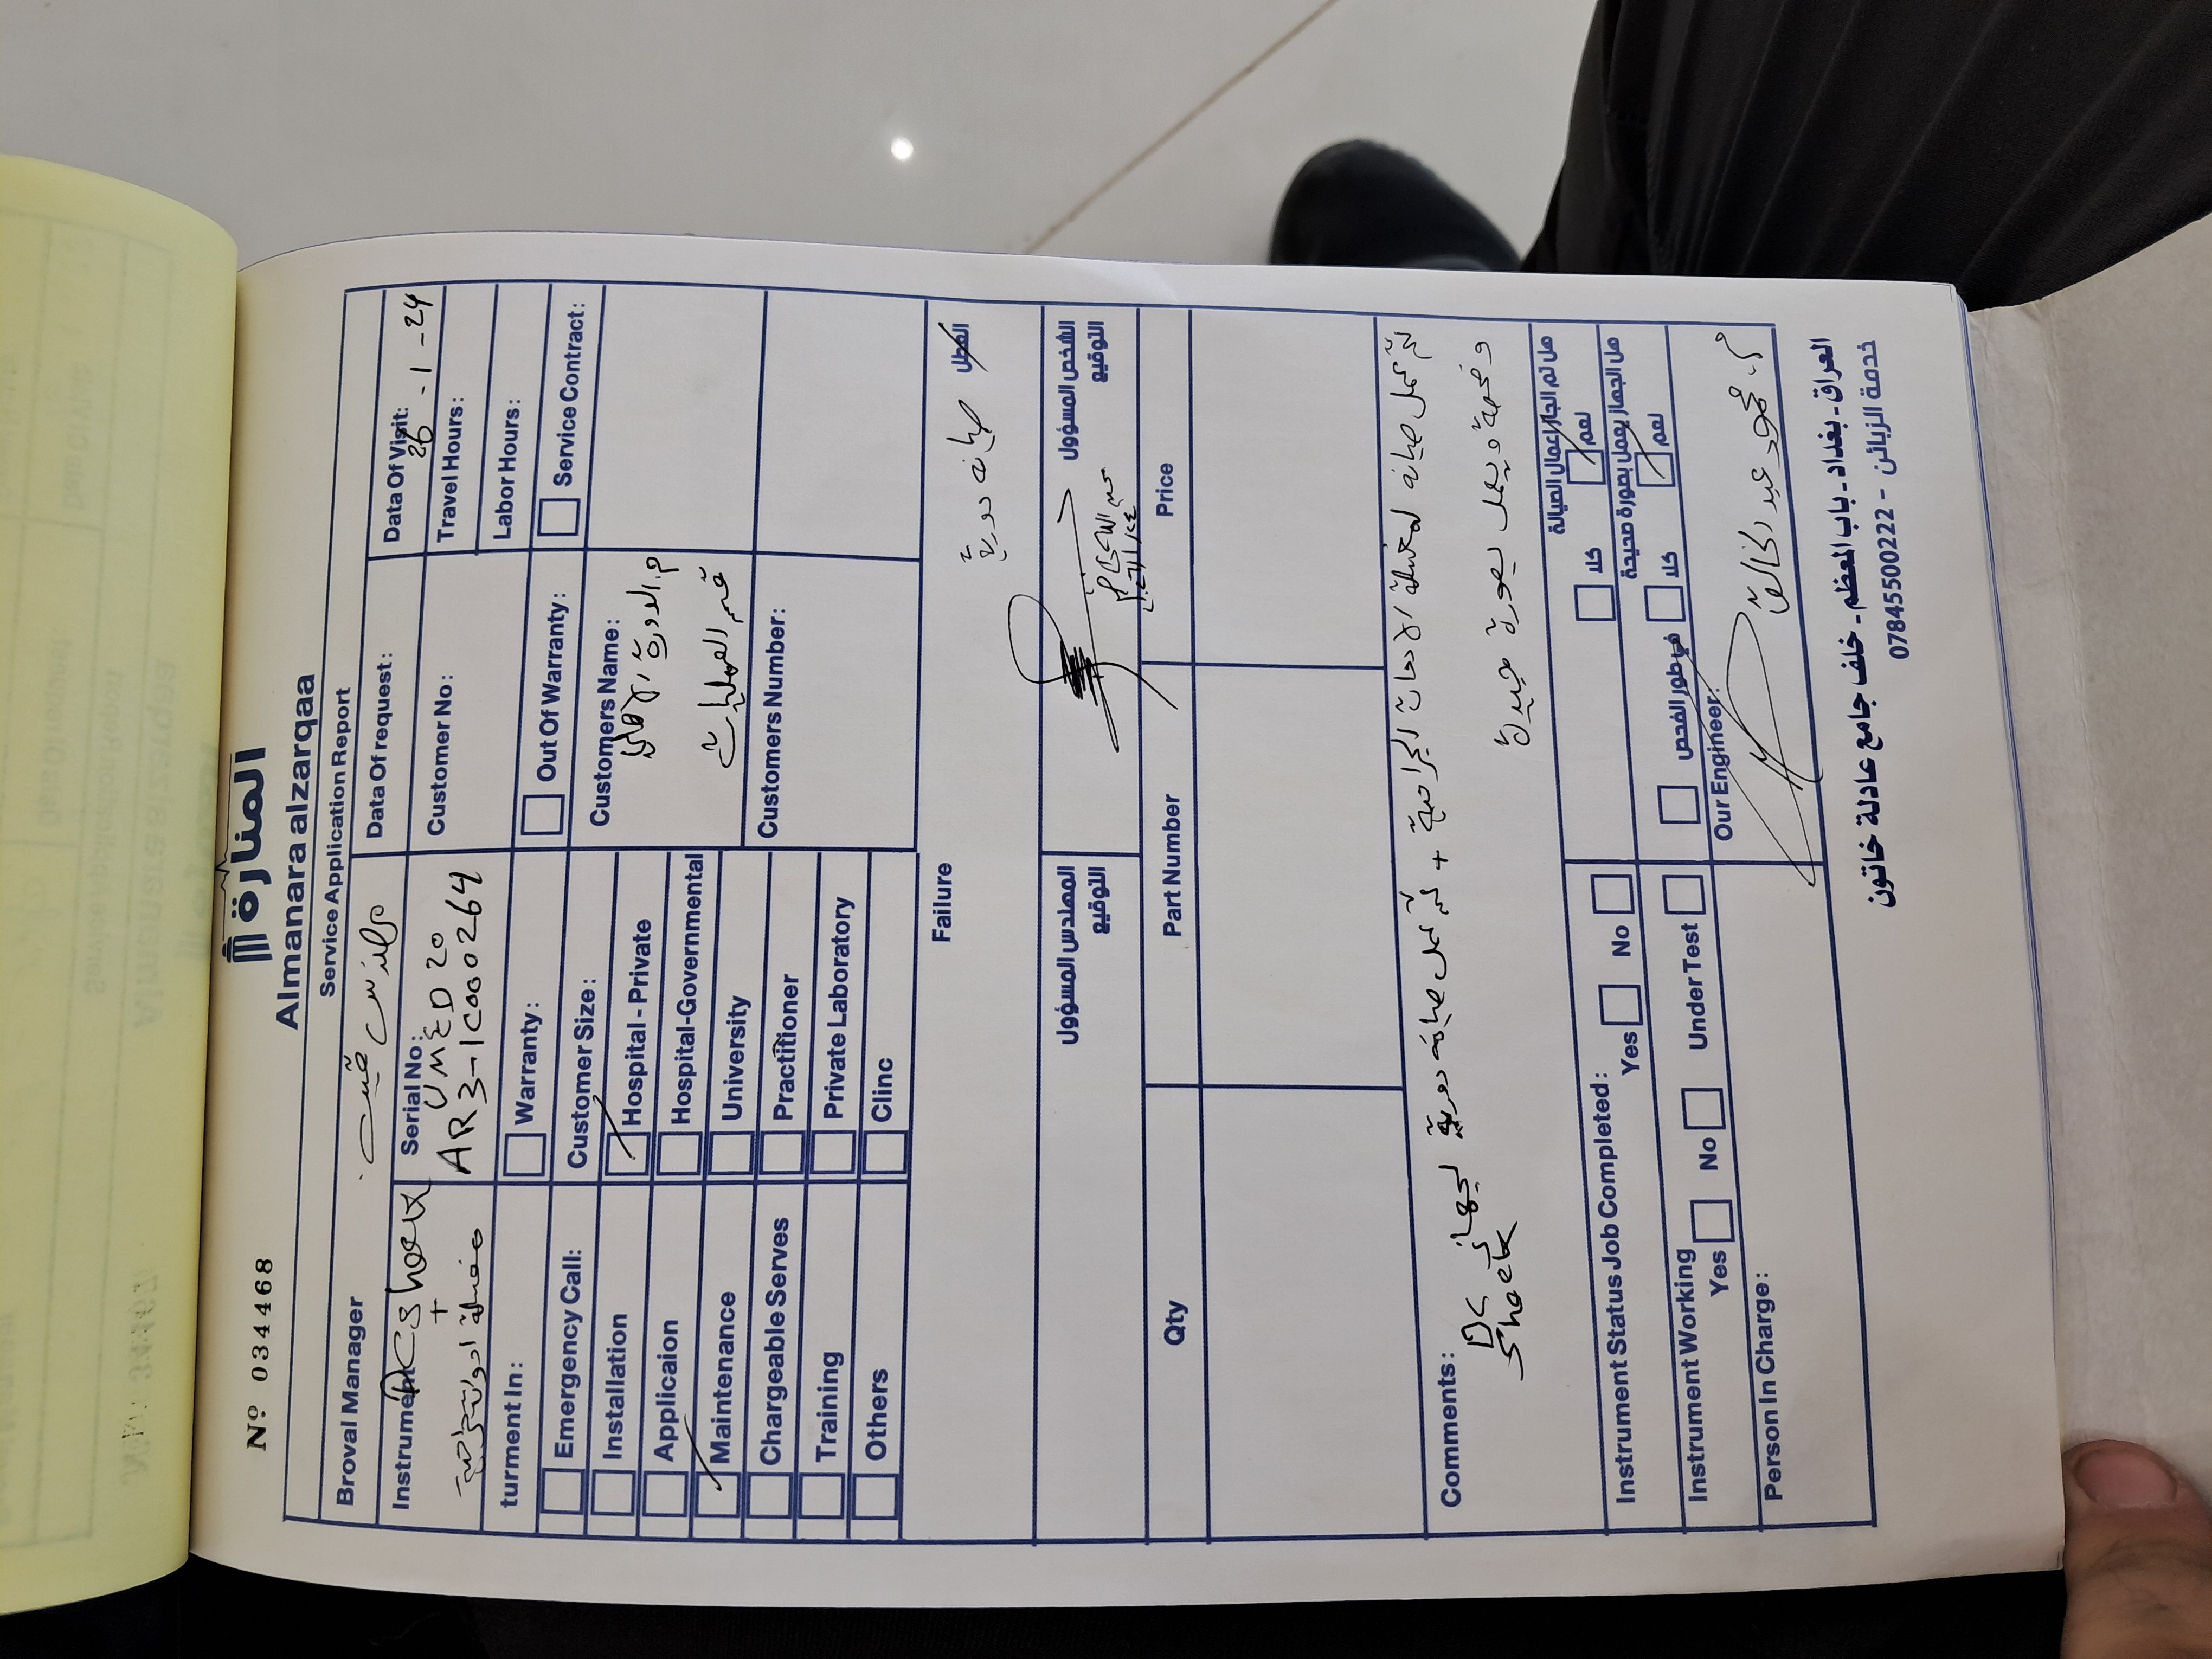 Nº 034468
المنارة
Almanara alzarqaa
Service Application Report
Broval Manager
Data Of request:
Data Of Visit:
26 - 1 - 24
Instrument
DC Shock
+
Serial No:
UMED 20
AR3-1C000264
Customer No:
Travel Hours:
Labor Hours:
turment In:
Warranty:
Out Of Warranty:
Service Contract:
Emergency Call:
Installation
Applicaion
Maintenance
Chargeable Serves
Training
Others
Customer Size:
Hospital - Private
Hospital-Governmental
University
Practitioner
Private Laboratory
Clinc
Customers Name:
قسم العمليات
Customers Number:
Failure
العطل
صيانه دورية
المهندس المسؤول
التوقيع
الشخص المسؤول
التوقيع
Qty
Part Number
Price
Comments:
تم عمل صيانه لمغسلة الادوات الجراحية + تم عمل صيانه دورية لجهاز
DC Shock
وفحصة ويعمل بصورة جيدة
Instrument Status Job Completed:
Yes
No
هل تم انجاز اعمال الصيانة
كلا
نعم
Instrument Working
Yes
No
Under Test
هل الجهاز يعمل بصورة صحيحة
في طور الفحص
كلا
نعم
Person In Charge:
Our Engineer:
م. محمود عبد الخالق
العراق - بغداد - باب المعظم - خلف جامع عادلة خاتون
خدمة الزبائن - 07845500222